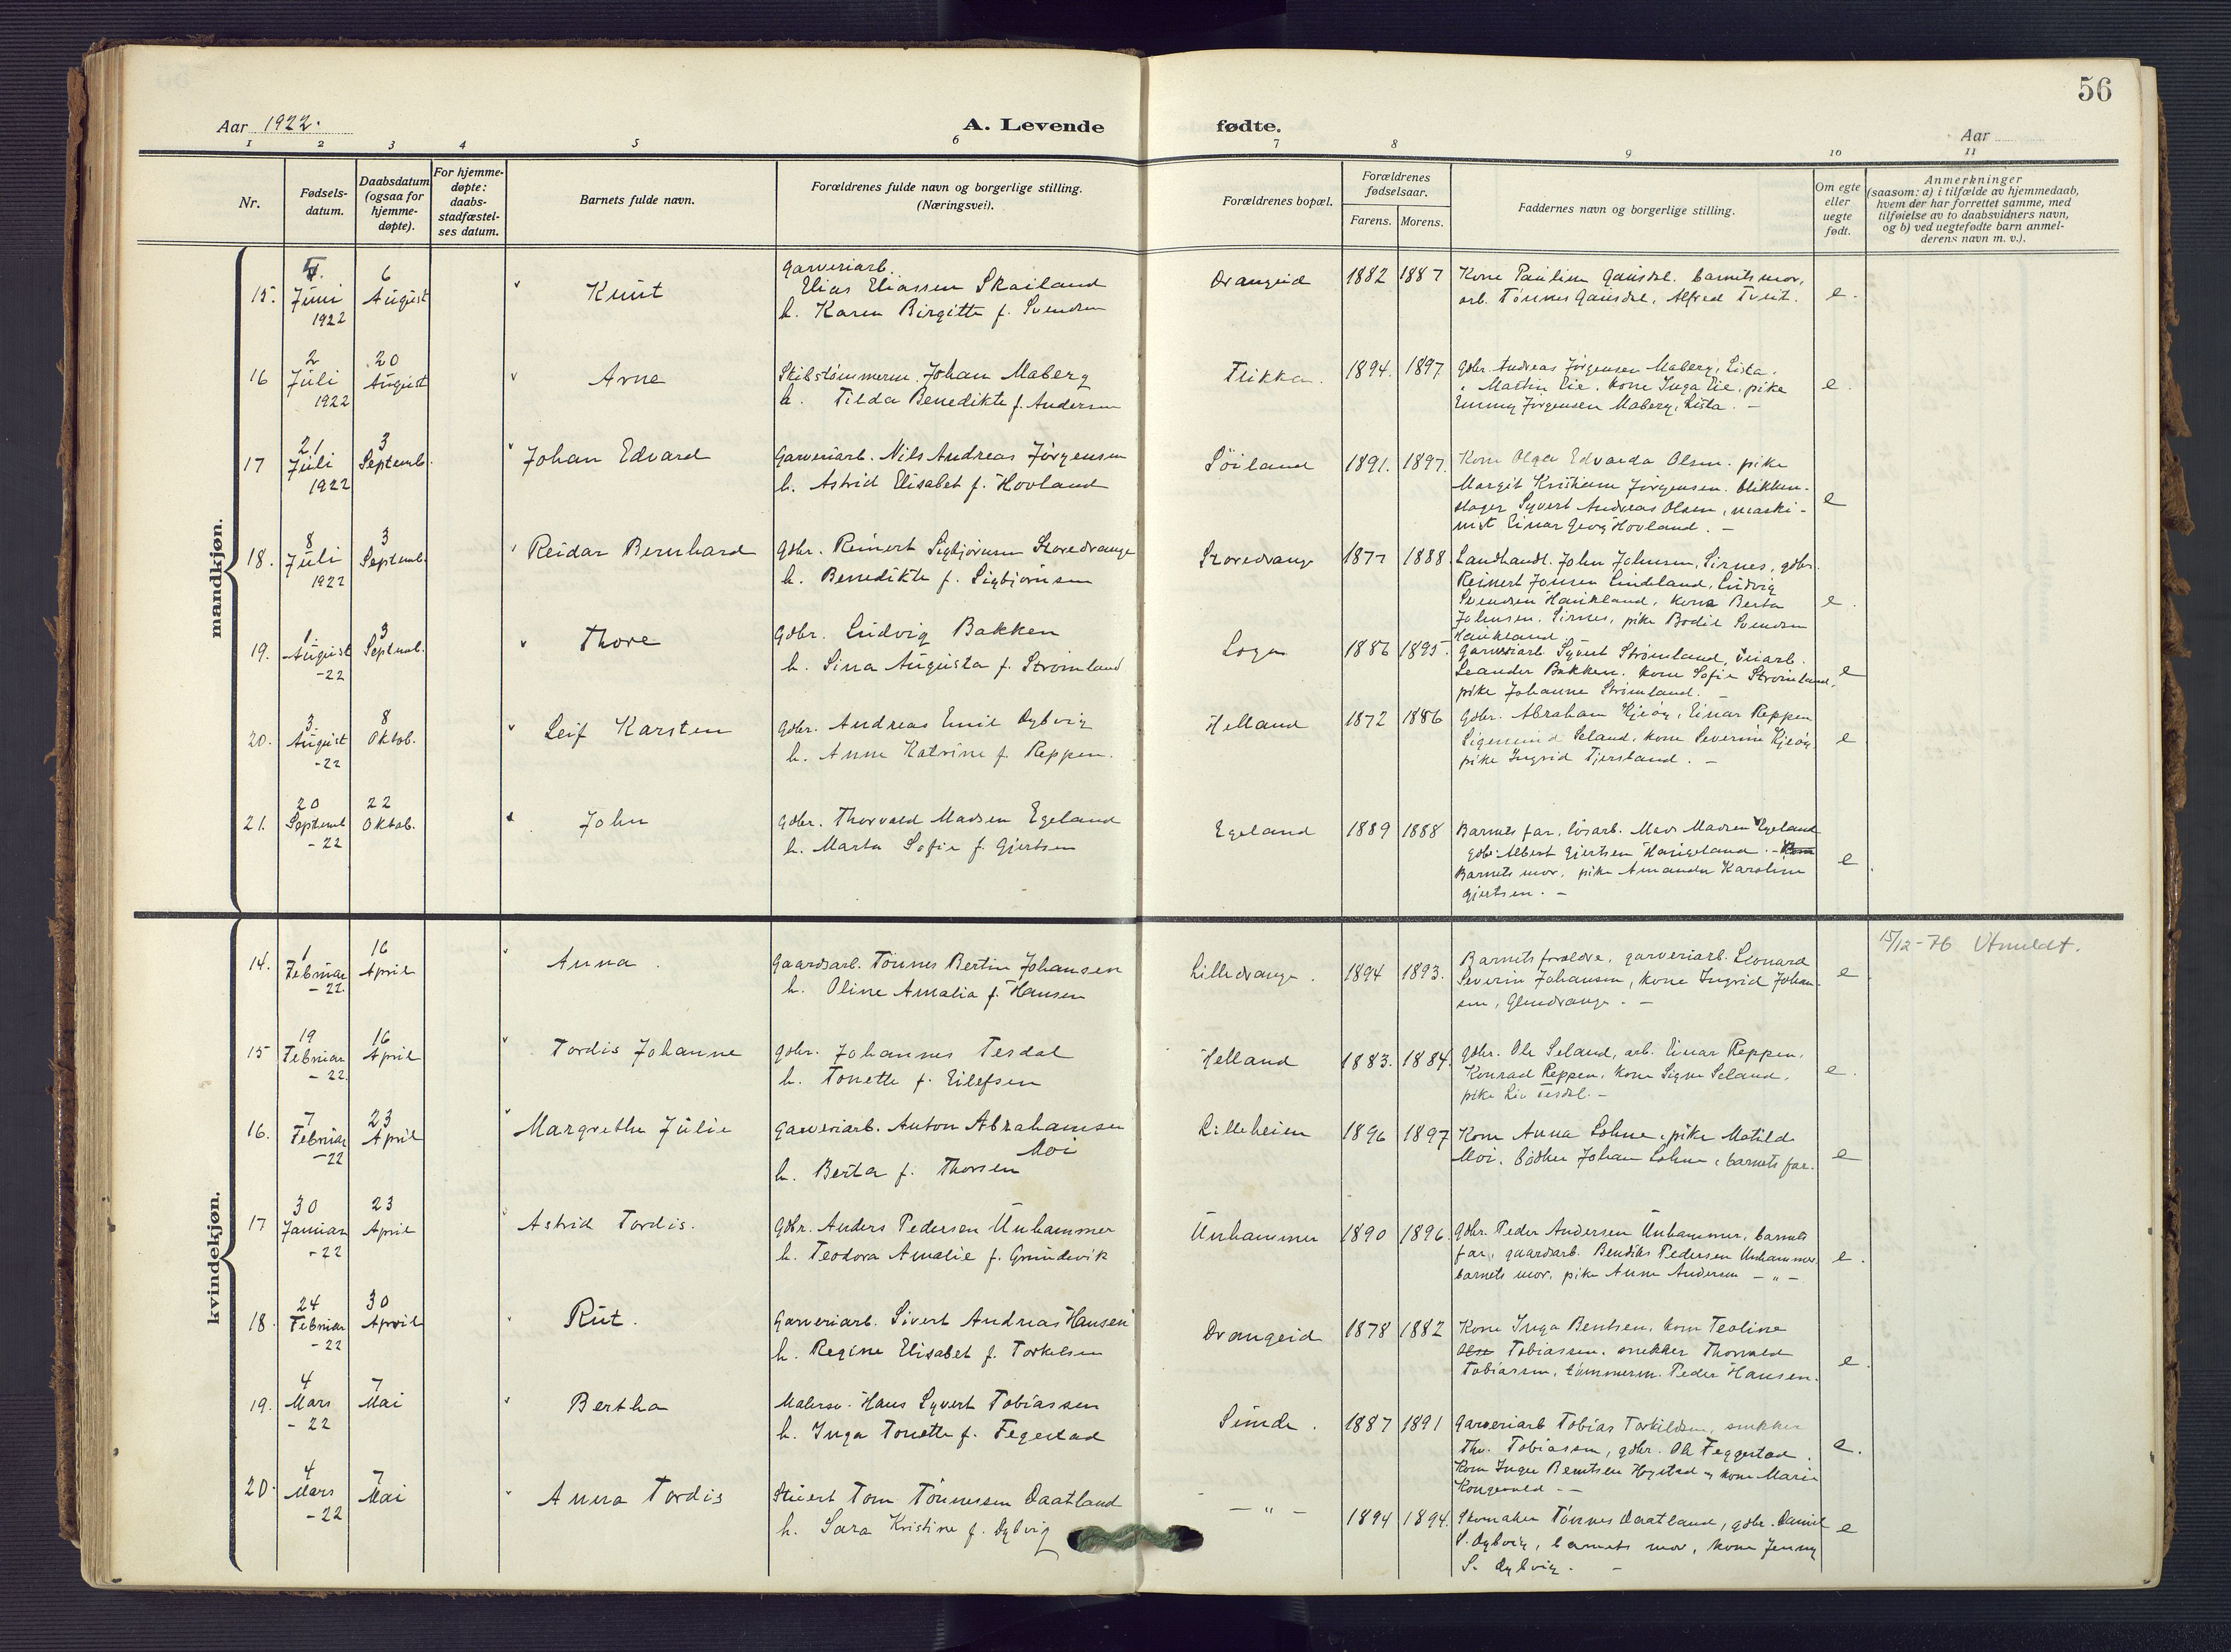 56
Aar 1922.
A. Levende fødte.
Aar
1 2 3 4 5 6 7 8 9 10 11
Nr.
Fødsels-
datum.
Daabsdatum
(ogsaa for
hjemme-
døpte).
For hjemme-
døpte:
daabs-
stadfæstel-
ses datum.
Barnets fulde navn.
Forældrenes fulde navn og borgerlige stilling.
(Næringsvei).
Forældrenes bopæl.
Forældrenes
fødselsaar.
Farens. Morens.
Faddernes navn og borgerlige stilling.
Om egte
eller
uegte
født.
Anmerkninger
(saasom: a) i tilfælde av hjemmedaab,
hvem der har forrettet samme, med
tilføielse av to daabsvidners navn,
og b) ved uegtefødte barn anmel-
derens navn m. v.).
mandkjøn.
15. Juni 1922
6 August
Knut
Garveriarb.
Elias Eliassen Skailand
h. Karen Birgitte f. Svendsen
Drangeid 1882 1887
Kone Pauline Gausdal. barnets mor,
arb. Tønnes Gausdal, Alfred Tveit.
e.
16 2 Juli 1922
20 August
Arne
Skibstømmerm. Johan Maberg
h. Tilda Benedikte f. Andersen
Flikka. 1894. 1897
Gbr. Andreas Jørgensen Maberg, Lista.
" Martin Eie, kone Inga Eie, pike
Emmy Jørgensen Maberg, Lista. –
e.
17 21 Juli 1922
3 Septemb.
Johan Edvard
Garveriarb. Nils Andreas Jørgensen
h. Astrid Elisabet f. Hovland
Søiland 1891. 1897.
Kone Olga Edvarda Olsen. pike
Margit Kristiane Jørgensen. blikken-
slager Syvert Andreas Olsen, maski-
nist Einar Georg Hovland. –
e
18. 8 Juli 1922
3 Septemb.
Reidar Bernhard
Gbr. Reinert Sigbjørnsen Storedrange
h. Benedikte f. Sigbjørnsen
Storedrange 1877 1888
Landhandl. John Johnsen, Sirnes, gbr.
Reinert Jonsen Lindeland, Ludvig
Svendsen Haukland, kone Berta
Johnsen. Sirnes, pike Bodil Svendsen
Haukland.
e.
19. 1. August -22
3 Septemb.
Thore
Gbr. Ludvig Bakken
h. Sina Augusta f. Strømland
Loga 1886 1895.
Garveriarb. Syvert Strømland, veiarb.
Leander Bakken. kone Sofie Strømland,
pike Johanne Strømland. –
e
20. 3. August -22
8 Oktob.
Leif Karsten
Gbr. Andreas Emil Dybvig
h. Anne Katrine f. Reppen.
Helland 1872 1886
Gbr. Abraham Kjeøy, Einar Reppen
Sigemund Seland, kone Severine Kjeøy
pike Ingrid Tjersland. –
e
21. 20 Septemb -22
22 Oktob.
John
Gbr. Thorvald Madsen Egeland
h. Marta Sofie f. Gjertsen
Egeland 1889 1888
Barnets far, løsarb. Mads Madsen Egeland
gbr. Albert Gjertsen Haugeland. –
Barnets mor, pike Amanda Karoline
Gjertsen. –
e.
kvindekjøn.
14. 1 Februar -22.
16 April
Anna.
Gaardsarb. Tønnes Bertin Johansen
h. Oline Amalia f. Hansen
Lilledrange. 1894 1893.
Barnets forældre, garveriarb. Leonard
Severin Johansen, kone Ingrid Johan-
sen, Glendrange. –
e.
15/12-76 Utmeldt.
15 19 Februar -22.
16 April
Tordis Johanne
Gbr. Johannes Tesdal
h. Tonette f. Eilefsen
Helland 1883. 1884.
Gbr. Ole Seland, arb. Einar Reppen.
Konrad Reppen, kone Signe Seland.
pike Liv Tesdal. –
e.
16. 7 Februar -22
23 April
Margrethe Julie
Garveriarb. Anton Abrahamsen
Moi
h. Berta f. Thorsen
Lilleheien 1896 1897
Kone Anna Lohne, pike Matilde
Moi. bødker Johan Lohne, barnets far.
e
17 30 Januar -22
23 April
Astrid Tordis.
Gbr. Anders Pedersen Unhammer
h. Teodora Amalie f. Grundevik
Unhammer 1890 1896.
Gbr. Peder Andersen Unhammer, barnets
far, gaardsarb. Bendiks Pedersen Unhammer
barnets mor, pike Anne Andersen – " –
e.
18. 24 Februar -22
30 April
Rut.
Garveriarb. Sivert Andreas Hansen
h. Regine Elisabet f. Torkelsen
Drangeid 1878 1882
Kone Inga Bentsen, kone Teoline
Tobiassen. snekker Thorvald
Tobiassen, tømmerm. Peder Hansen.
e.
19. 4 Mars -22
7 Mai
Bertha
Malersv. Hans Syvert Tobiassen
h. Inga Tonette f. Fegestad
Sunde. 1887 1891
Garveriarb Tobias Torkildsen, snekker
Thv. Tobiassen, gbr. Ole Feggestad.
Kone Inger Berntsen Hogstad og kone Marie
Kongevold –
e.
20. 4 Mars -22
7 Mai
Anna Tordis
Stuert Tom Tønnessen Daatland
h. Sara Kristine f. Dybvig
– " – 1894 1894.
Skomaker Tønnes Daatland, gbr. Daniel
S. Dybvig, barnets mor, kone Jenny
S. Dybvig. –
e